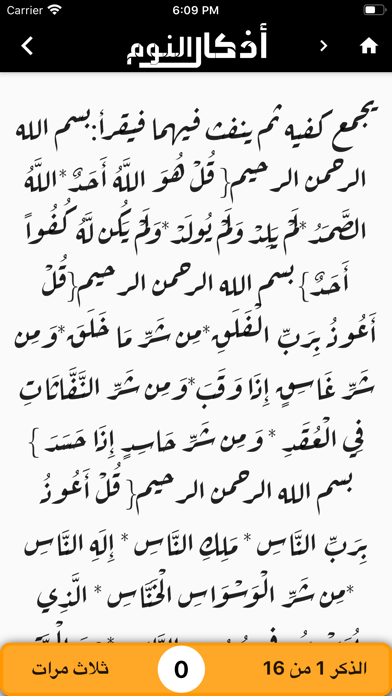 Carrier 6:09 PM
أذكار النوم
يجمع كفيه ثم ينفث فيهما فيقرأ:بسم الله
الرحمن الرحيم{ قُلْ هُوَ اللَّهُ أَحَدٌ *اللَّهُ
الصَّمَدُ *لَمْ يَلِدْ وَلَمْ يُولَدْ *وَلَمْ يَكُن لَّهُ كُفُواً
أَحَدٌ} بسم الله الرحمن الرحيم{قُلْ
أَعُوذُ بِرَبِّ الْفَلَقِ*مِن شَرِّ مَا خَلَقَ*وَمِن
شَرِّ غَاسِقٍ إِذَا وَقَبَ*وَمِن شَرِّ النَّفَّاثَاتِ
فِي الْعُقَدِ * وَمِن شَرِّ حَاسِدٍ إِذَا حَسَدَ }
بسم الله الرحمن الرحيم{ قُلْ أَعُوذُ
بِرَبِّ النَّاسِ * مَلِكِ النَّاسِ * إِلَهِ النَّاسِ
*مِن شَرِّ الْوَسْوَاسِ الْخَنَّاسِ * الَّذِي
الذكر 1 من 16 0 ثلاث مرات